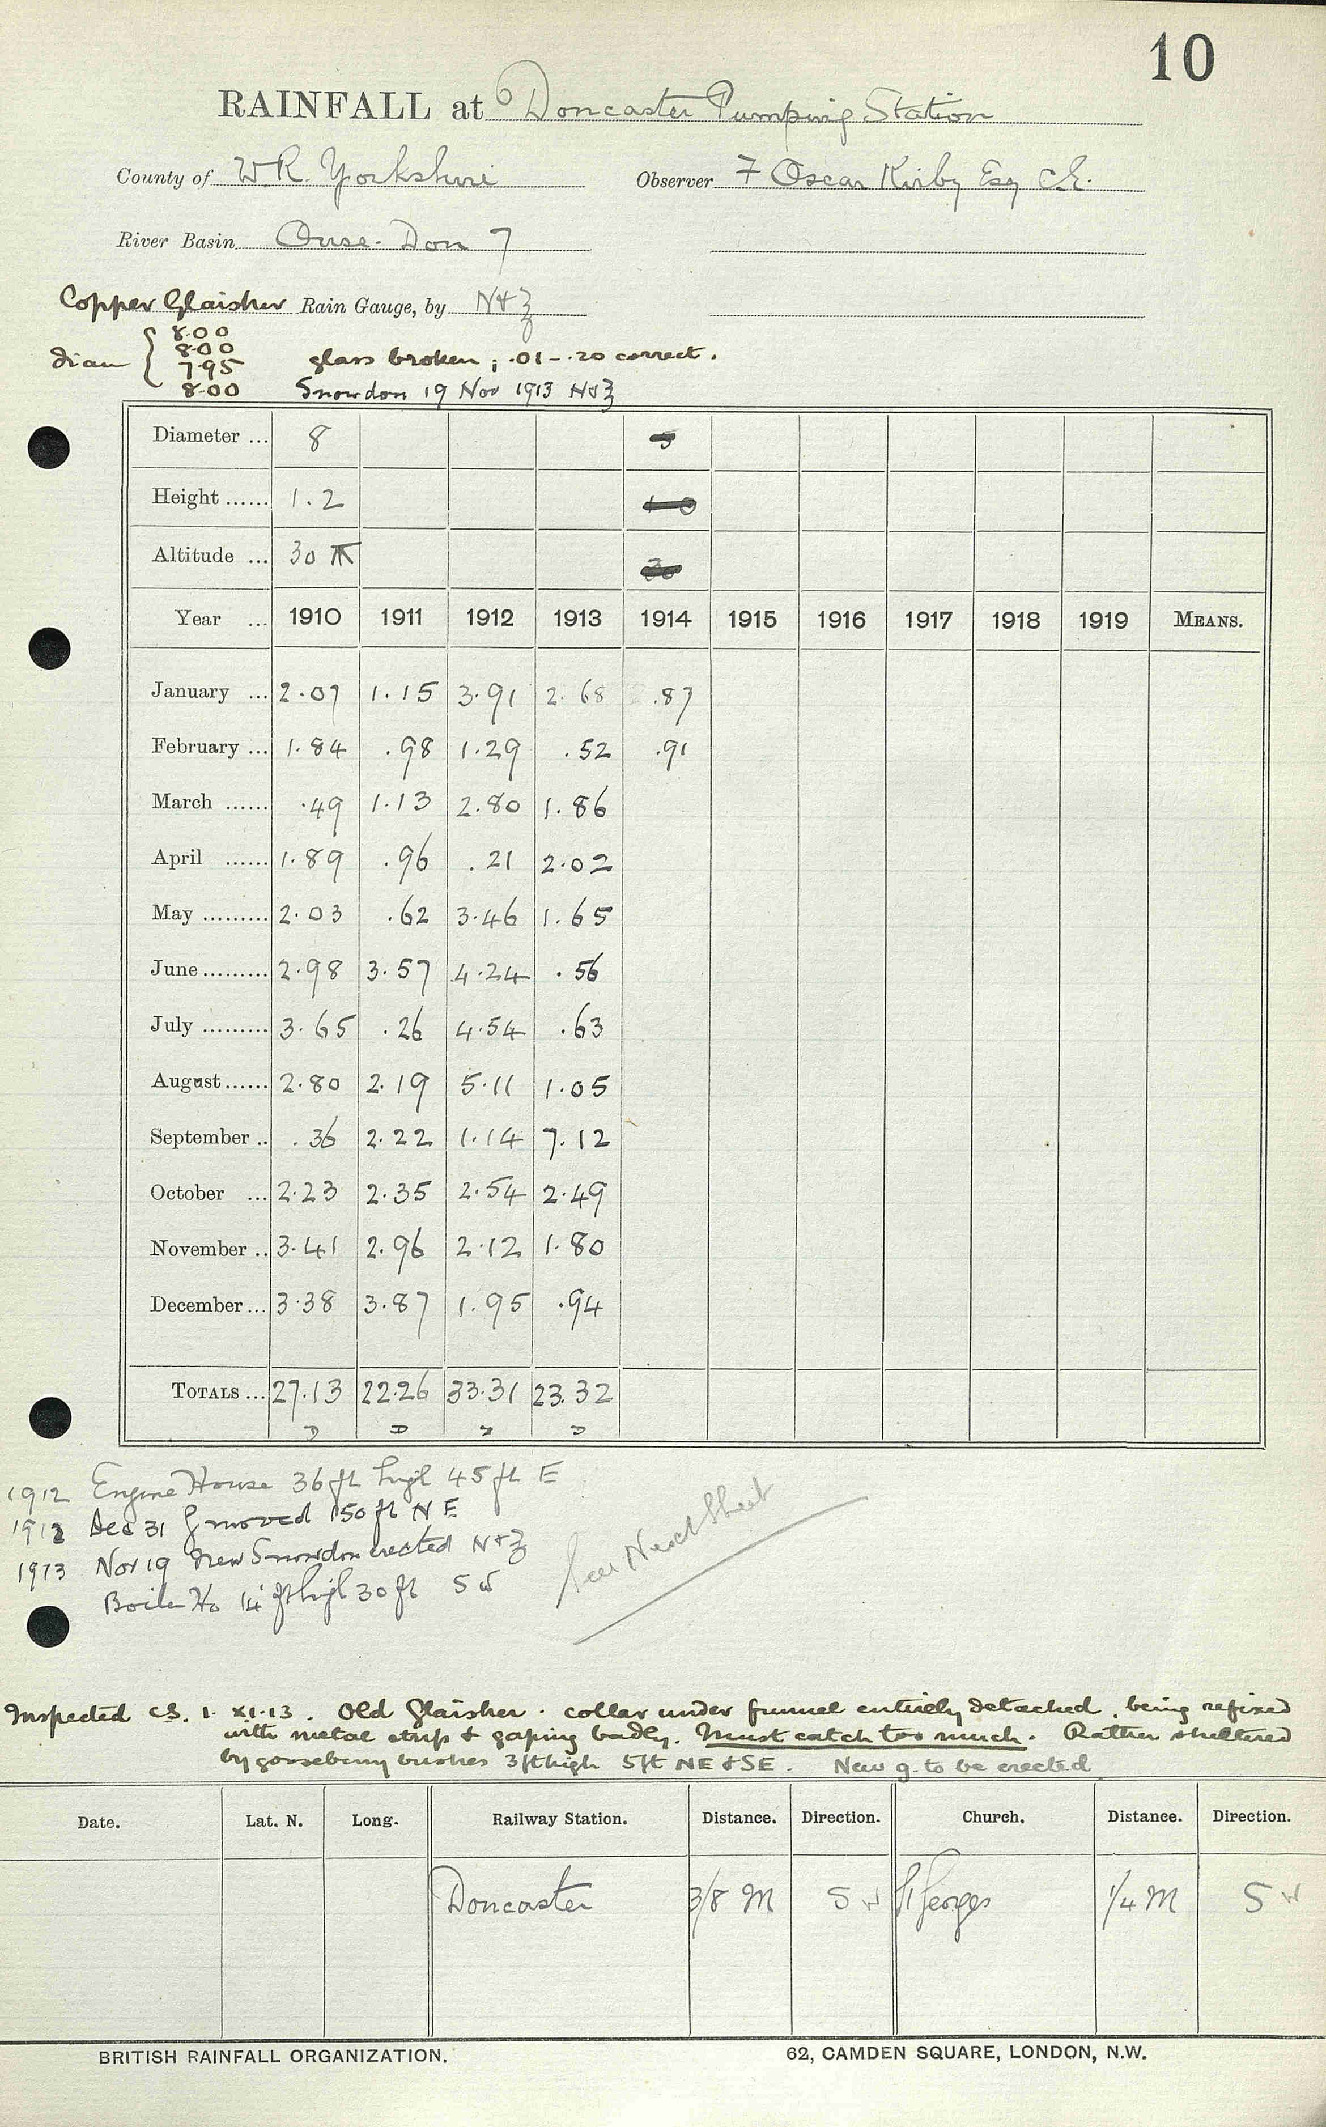 10
RAINFALL at Doncaster Pumping Station
County of W.R. Yorkshire Observer F Oscar Kirby Esq C.E.
River Basin Ouse-Don 7
Copper Glaisher Rain Gauge, by N+Z
Diam { 8.00
8.00
7.95 glass broken; .01-.20 correct.
8.00 Snowdon 19 Nov 1913 N+Z
Diameter ... 8 5
Height ...... 1.2 1 0
Altitude ... 30 30
Year ... 1910 1911 1912 1913 1914 1915 1916 1917 1918 1919 MEANS.
January ... 2.07 1.15 3.91 2.68 .87
February ... 1.84 .98 1.29 .52 .91
March ...... .49 1.13 2.80 1.86
April ...... 1.89 .96 .21 2.02
May ......... 2.03 .62 3.46 1.65
June ......... 2.98 3.57 4.24 .56
July ......... 3.65 .26 4.54 .63
August ...... 2.80 2.19 5.11 1.05
September .. .36 2.22 1.14 7.12
October ... 2.23 2.35 2.54 2.49
November .. 3.41 2.96 2.12 1.80
December ... 3.38 3.87 1.95 .94
TOTALS ... 27.13 22.26 33.31 23.32
1912 Engine House 36 ft high 45 ft E
1912 Dec 31 g moved 150 ft NE
1913 Nov 19 New Snowdon erected N+Z
Boiler Ho 14 ft high 30 ft SW
See Next Sheet
Inspected CS. 1. XI.13. Old Glaisher. collar under funnel entirely detached, being refixed
with metal strip & gaping badly. Must catch too much. Rather sheltered
by gooseberry bushes 3ft high 5ft NE & SE. New g. to be erected
Date. Lat. N. Long. Railway Station. Distance. Direction. Church. Distance. Direction.
Doncaster 3/8 M SW St Georges 1/4 M SW
BRITISH RAINFALL ORGANIZATION. 62, CAMDEN SQUARE, LONDON, N.W.